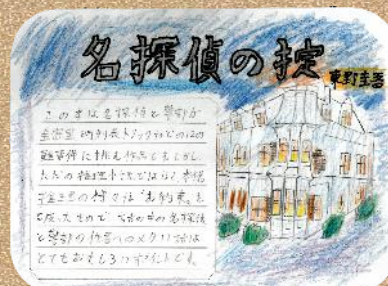 名探偵の掟
東野圭吾
この本は名探偵と警部が
密室 時刻表トリックなどの12の
難事件に挑む作品です。しかし
ただの推理小説ではなく 本格
推理の "お約束" を
その名探偵
と警部の作者へのメタい話は
とてもおもしろいポイントです。